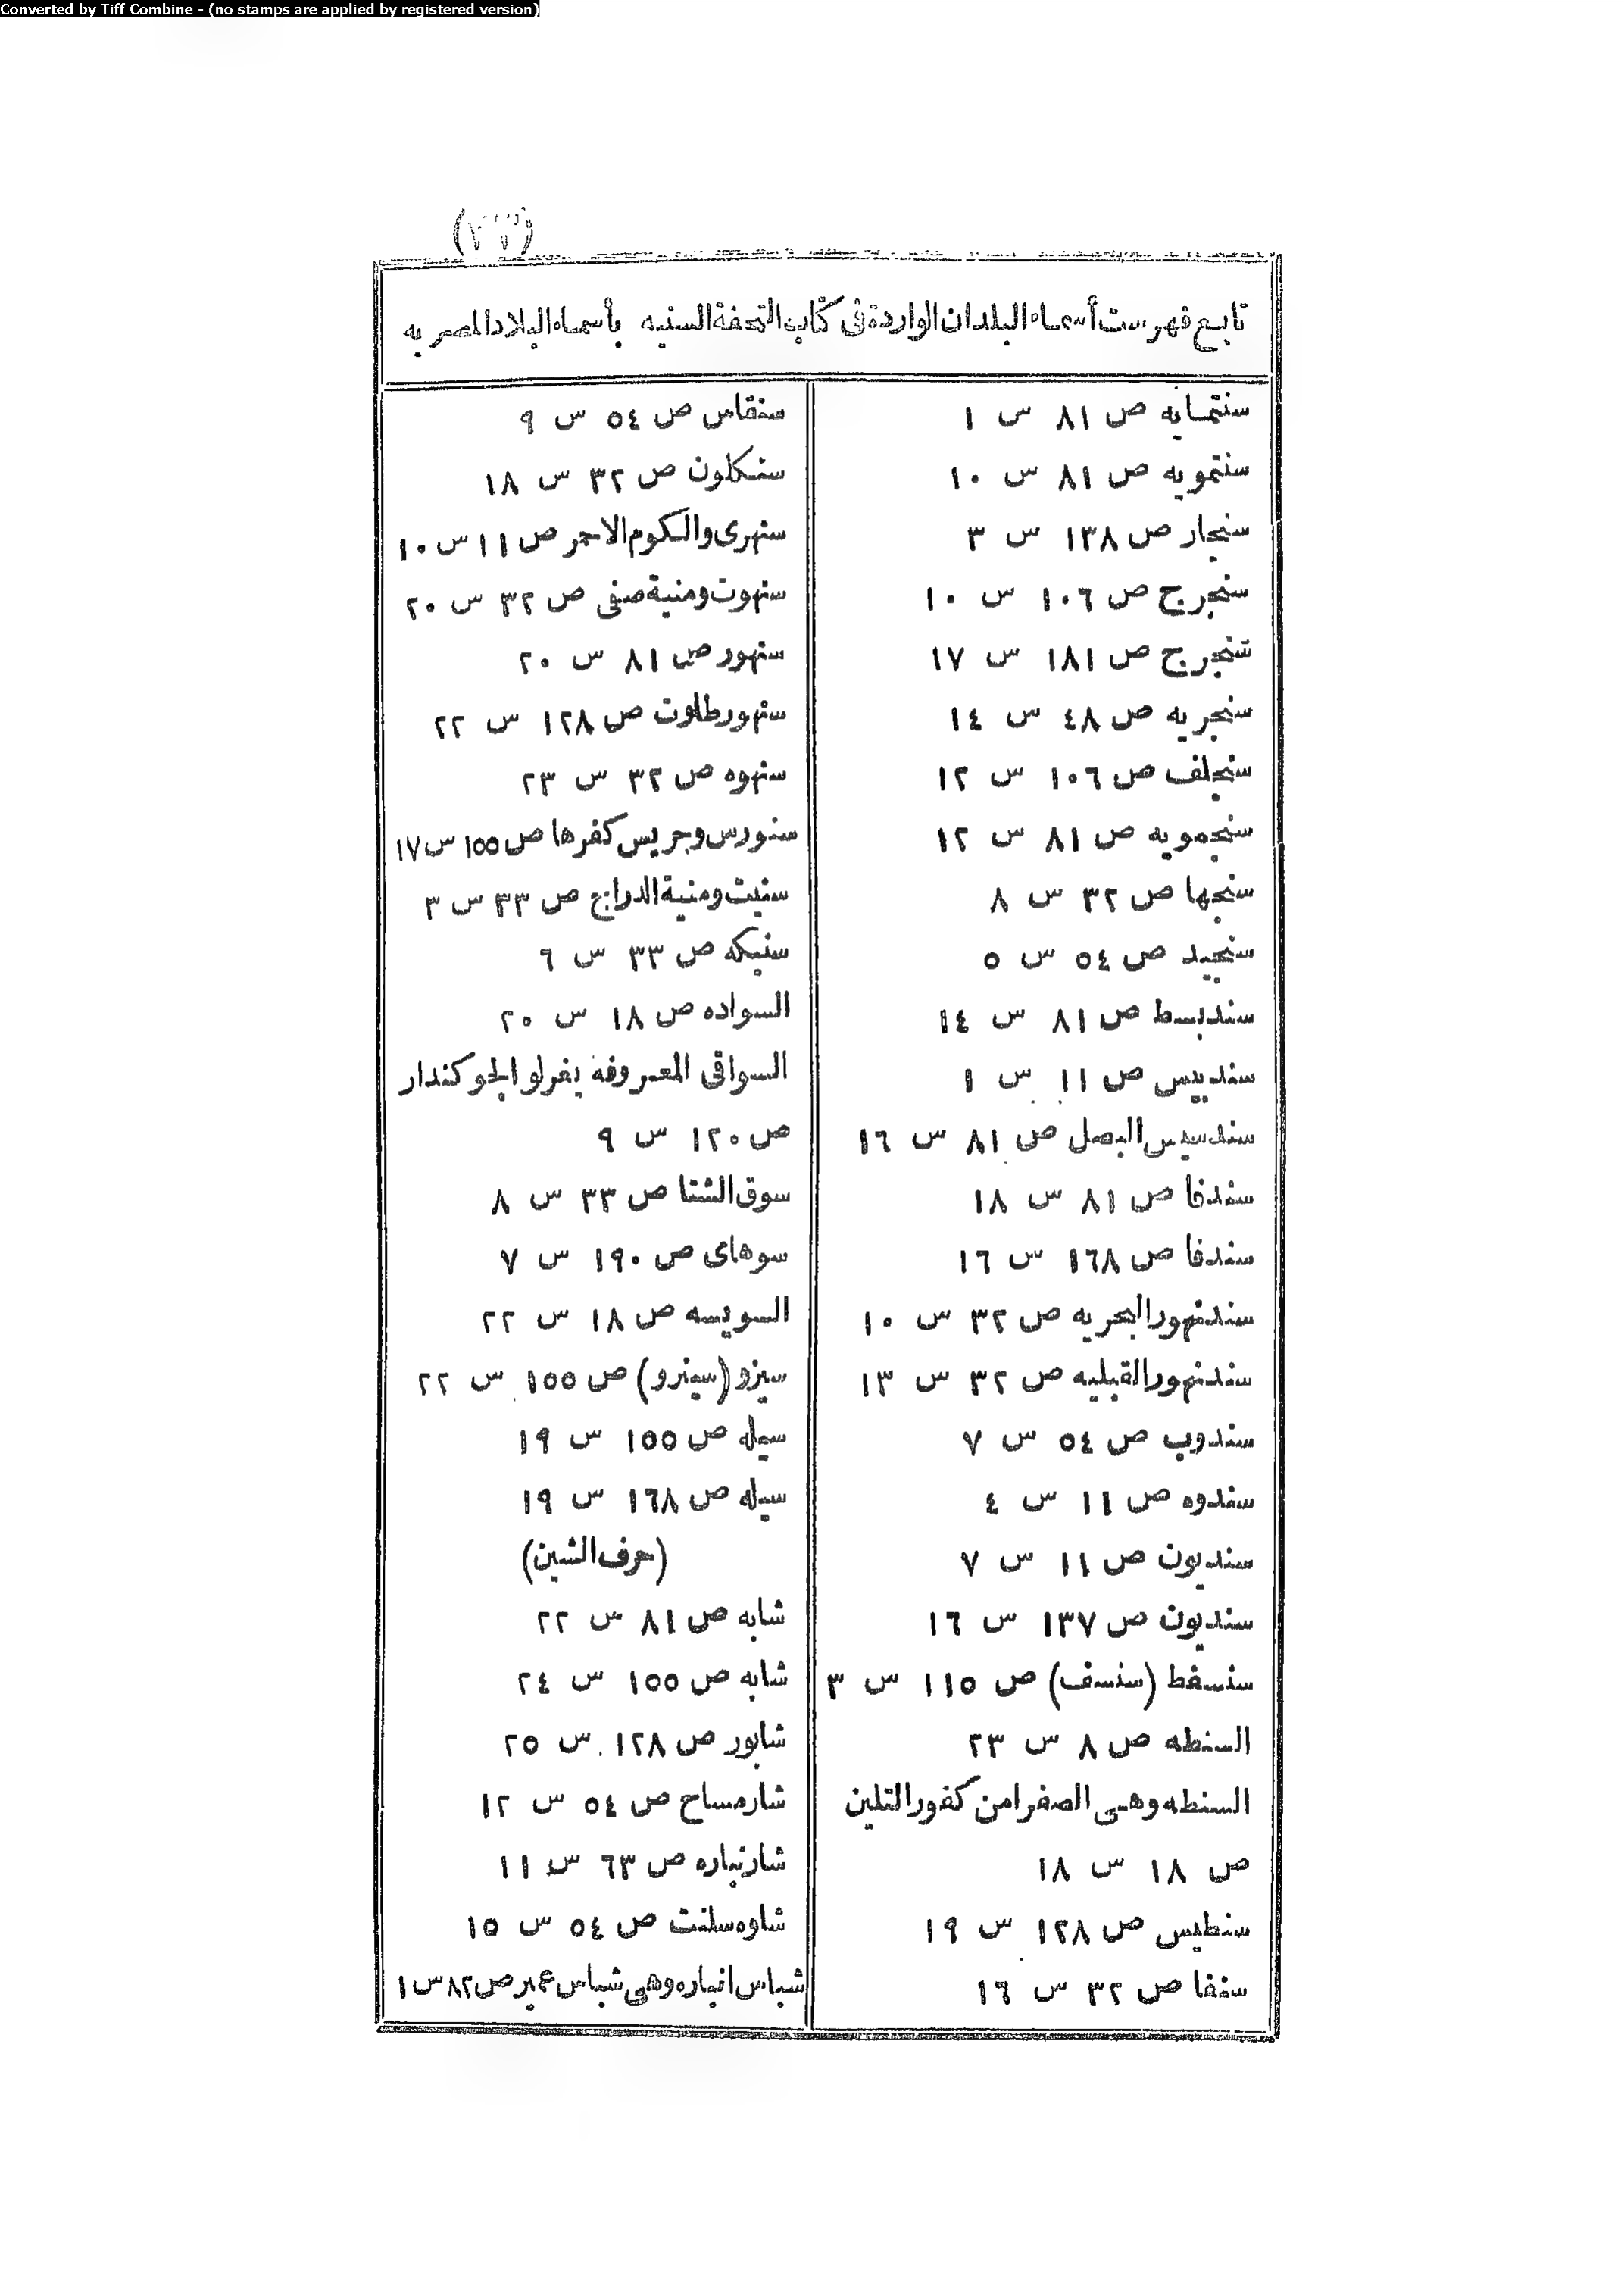 Converted by Tiff Combine - (no stamps are applied by registered version)
تابع فهرست أسماء البلدان الواردة في كتاب التحفة السنيه بأسماء البلاد المصريه
سنتمايه ص ٨١ س ١
سنتمويه ص ٨١ س ١٠
سنجار ص ١٣٨ س ٣
سنجرج ص ١٠٦ س ١٠
سنجرج ص ١٨١ س ١٧
سنجريه ص ٤٨ س ١٤
سنجلف ص ١٠٦ س ١٢
سنجمويه ص ٨١ س ١٢
سنجها ص ٣٢ س ٨
سنجيد ص ٥٤ س ٥
سندبسط ص ٨١ س ١٤
سندبيس ص ١١ س ١
سندسيس البصل ص ٨١ س ١٦
سندفا ص ٨١ س ١٨
سندفا ص ١٦٨ س ١٦
سندنهور البحريه ص ٣٢ س ١٠
سندنهور القبليه ص ٣٢ س ١٣
سندوب ص ٥٤ س ٧
سندوه ص ١١ س ٤
سنديون ص ١١ س ٧
سنديون ص ١٣٧ س ١٦
سنسفط (سنسف) ص ١١٥ س ٣
السنطه ص ٨ س ٢٣
السنطه وهى الصفرا من كفور التلين
ص ١٨ س ١٨
سنطيس ص ١٢٨ س ١٩
سنفا ص ٣٢ س ١٦
سنقاس ص ٥٤ س ٩
سنكلون ص ٣٢ س ١٨
سنهرى والكوم الاحمر ص ١١ س ١٠
سنهوت ومنية صنفى ص ٣٢ س ٢٠
سنهور ص ٨١ س ٢٠
سنهور طلوت ص ١٢٨ س ٢٢
سنهوه ص ٣٢ س ٢٣
سنورس وجريس كفرها ص ١٥٥ س ١٧
سنيت ومنية الدراج ص ٣٣ س ٣
سنيكه ص ٣٣ س ٦
السواده ص ١٨ س ٢٠
السواقى المعروفه بغرلو الجوكندار
ص ١٢٠ س ٩
سوق الشتا ص ٣٣ س ٨
سوهاى ص ١٩٠ س ٧
السويسه ص ١٨ س ٢٢
سيزو (سينرو) ص ١٥٥ س ٢٢
سيله ص ١٥٥ س ١٩
سيله ص ١٦٨ س ١٩
(حرف الشين)
شابه ص ٨١ س ٢٢
شابه ص ١٥٥ س ٢٤
شابور ص ١٢٨ س ٢٥
شارمساح ص ٥٤ س ١٢
شارنباره ص ٦٣ س ١١
شاوه سلنت ص ٥٤ س ١٥
شباس انباره وهى شباس عمير ص ٨٢ س ١